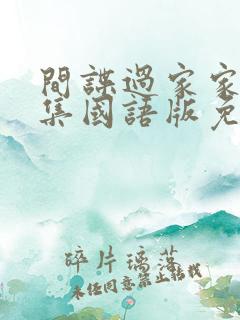 間諜過家家
集國語版免
碎片璃落
未经同意禁止转载